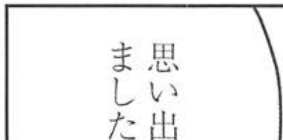 思い出
ました